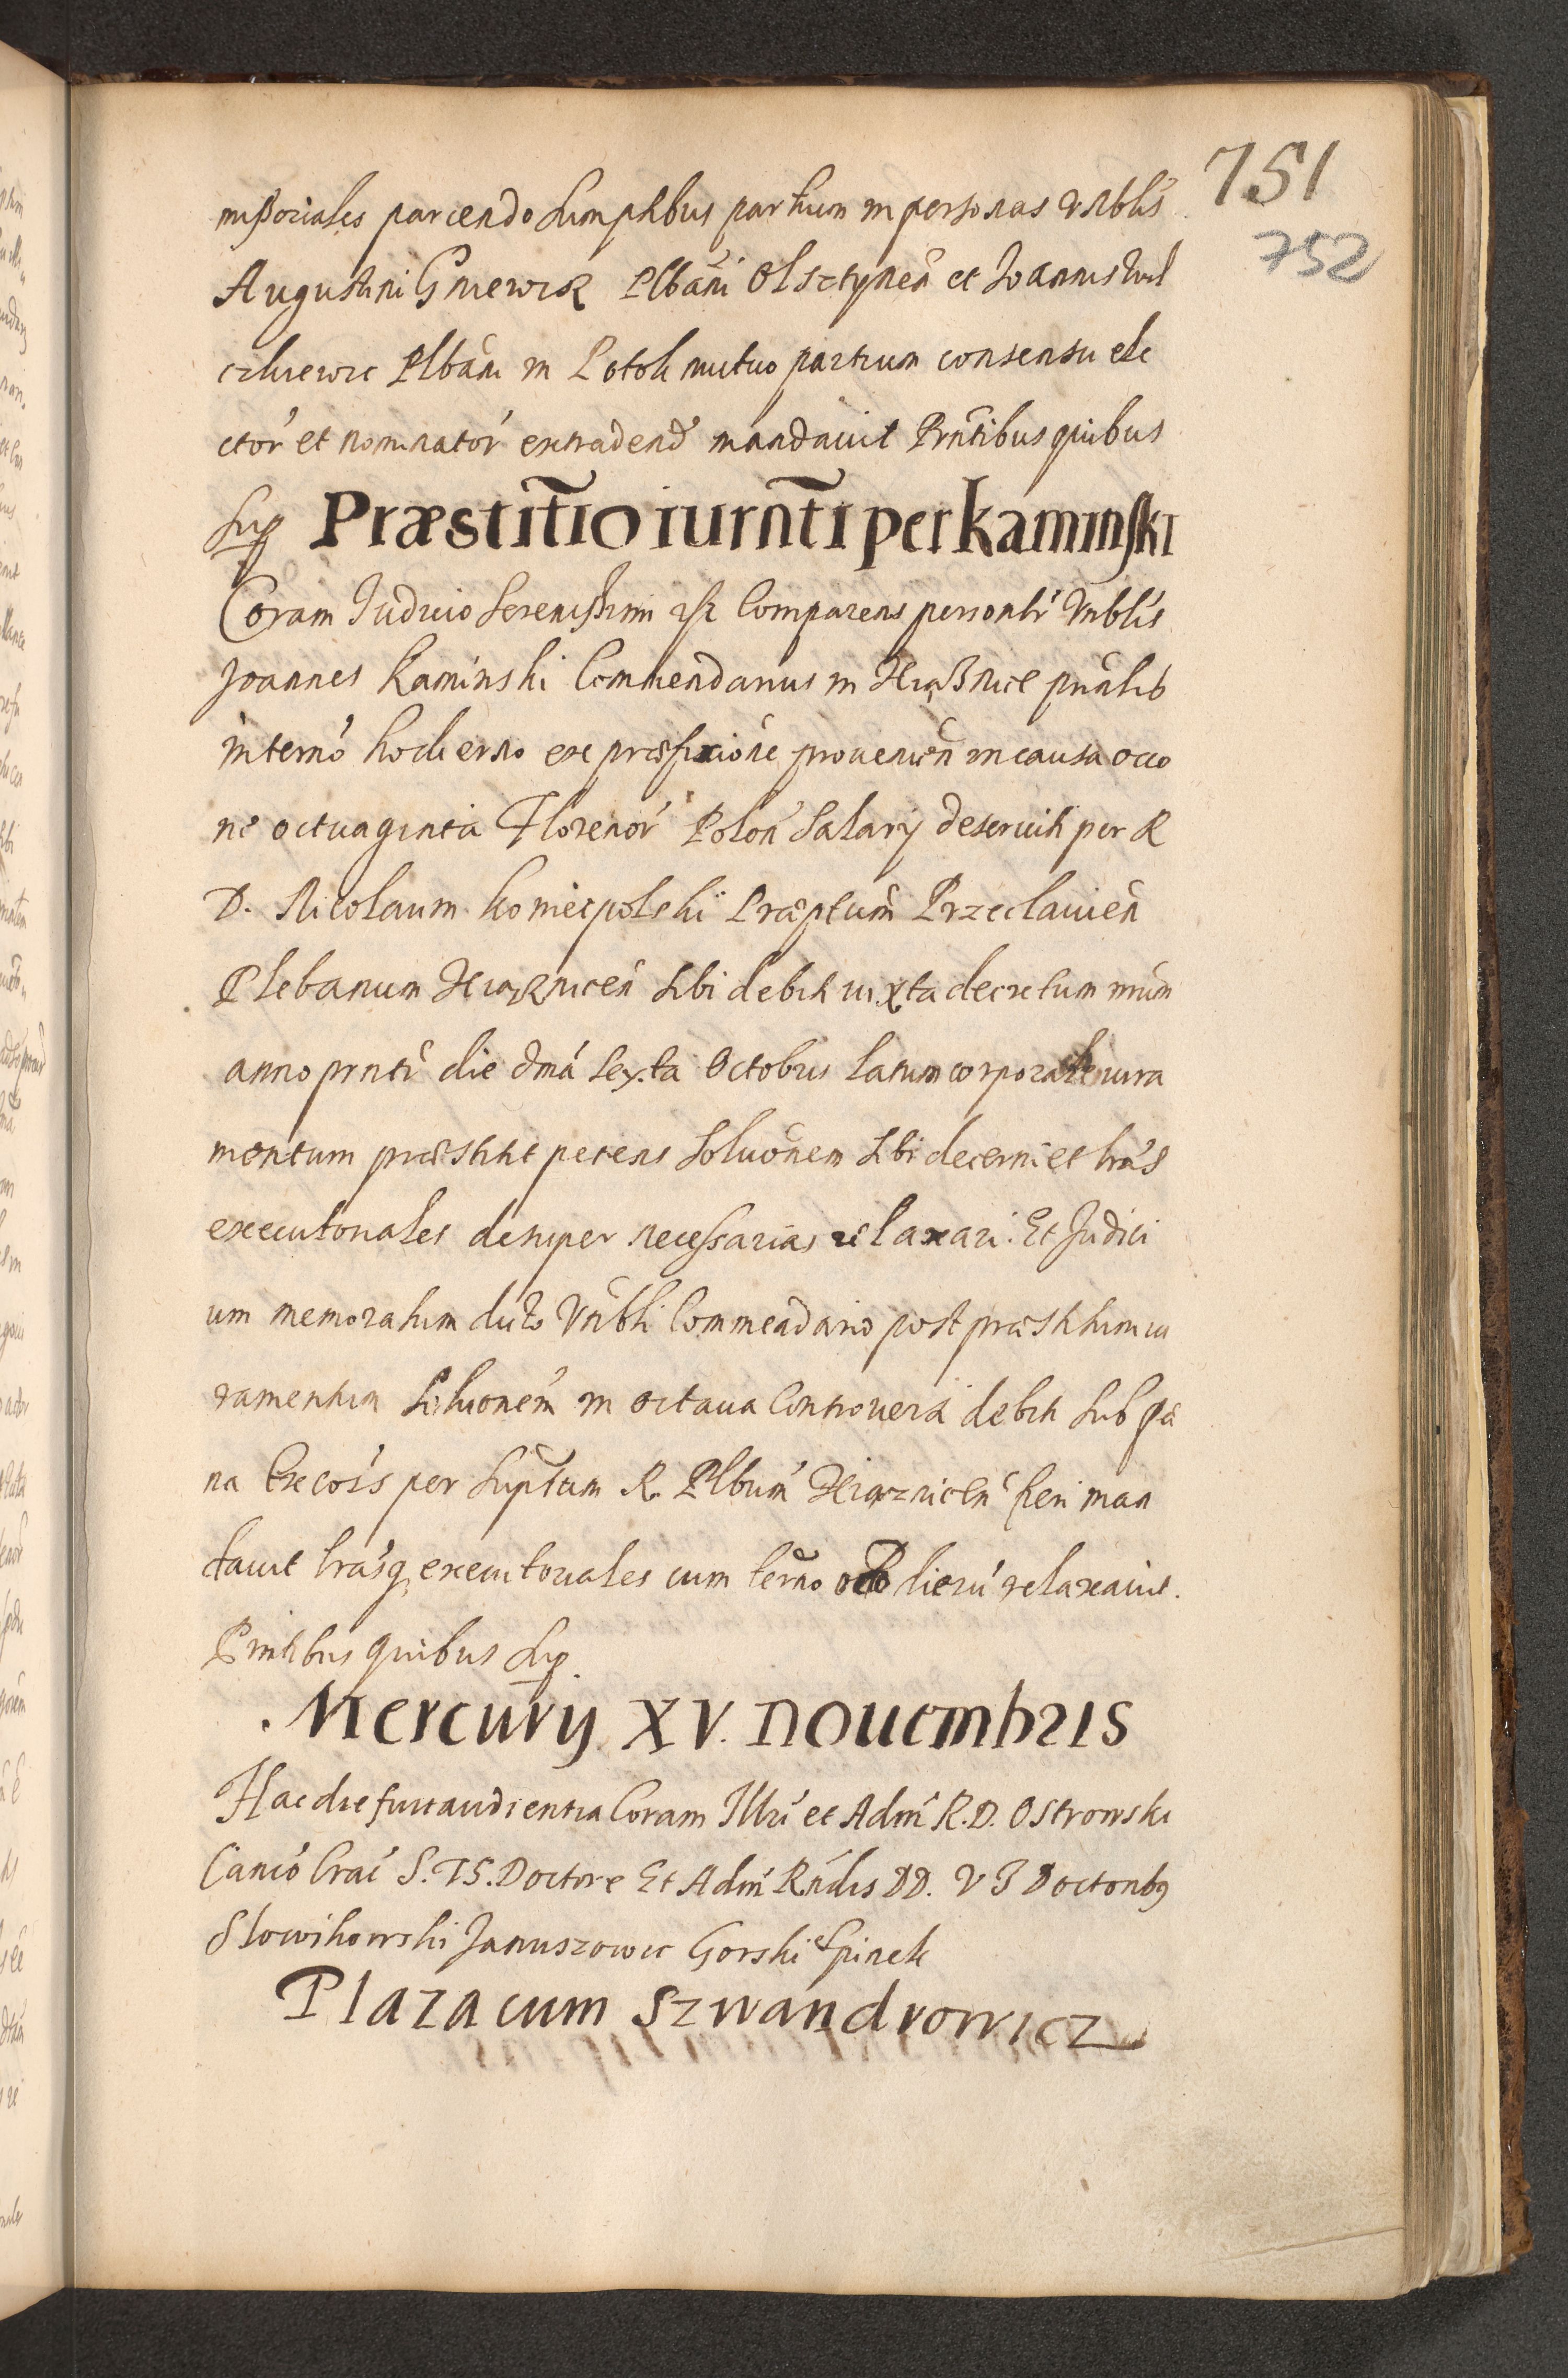 751
752
missoriales parcendo sumptibus partium in personas Vnblis
Augustini Gniewek Plbani Olsztynen et Joannis Wil
czkiewic Plbani in Potok mutuo partium consensu ele
ctor et nominator extradend mandauit Prntibus quibus
Sup Præstitio iurnti per Kaminski
Coram Judicio Serenissimi etc Comparens personlr Vnblis
Joannes Kaminski Commendarius in pnalit
in terno hodierno ex præfixione prouenien in causa occo
ne octuaginta Florenor Polon Salarij deseruiti per R
D. Nicolaum Koniecpolski Præptum Przeclauien
Plebanum sibi debiti iuxta decretum
anno prnti die dma sexta Octobris latum corporale iura
mentum præstitit petens Soluonem sibi decerni et lras
executoriales desuper necessarias relaxari. Et Judici
um memoratum dicto Vnbli Commendario post præstitum iu
ramentum Soluonem in octaua Controuersi debiti sub pæ
na Excois per Suptum R. Plbum fieri man
dauit lrasq executoriales cum terno octo dieru relaxauit.
Prntibus quibus Sup.
. Mercurij XV. Nouembris
Hac die fuit audientia Coram Illri et Adm R. D. Ostrowski
Canco Crac S. TS. Doctore Et Adm Rndis DD. V J Doctorib9
Slowikowski Januszowic Gorski et Spinek
Plaza cum Szwandrowicz